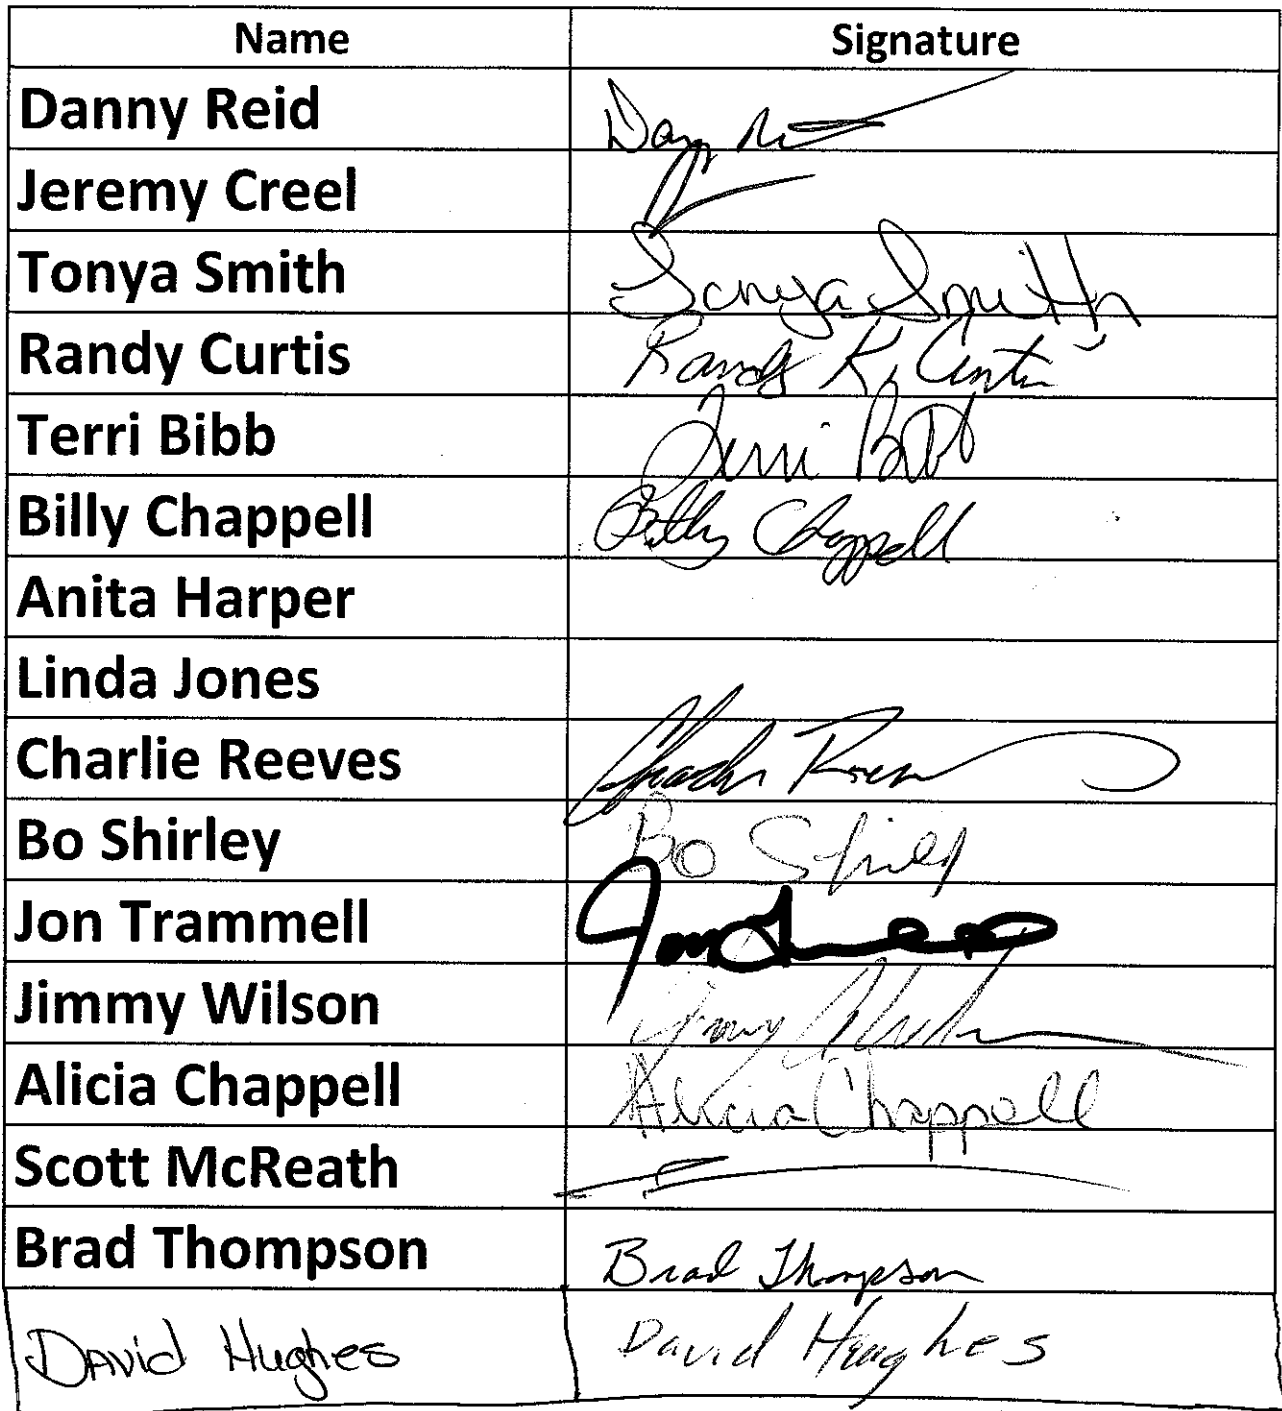 Name Signature
Danny Reid
Jeremy Creel
Tonya Smith Tonya Smith
Randy Curtis Randy K. Curtis
Terri Bibb Terri Bibb
Billy Chappell Billy Chappell
Anita Harper
Linda Jones
Charlie Reeves Charlie Reeves
Bo Shirley Bo Shirley
Jon Trammell
Jimmy Wilson Jimmy
Alicia Chappell Alicia Chappell
Scott McReath
Brad Thompson Brad Thompson
David Hughes David Hughes